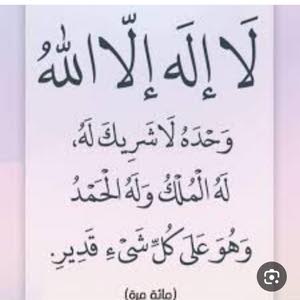 لَا إِلَهَ إِلَّا اللَّهُ
وَحْدَهُ لَا شَرِيكَ لَهُ،
لَهُ الْمُلْكُ وَلَهُ الْحَمْدُ
وَهُوَ عَلَى كُلِّ شَيْءٍ قَدِيرٍ.
(مائة مرة)